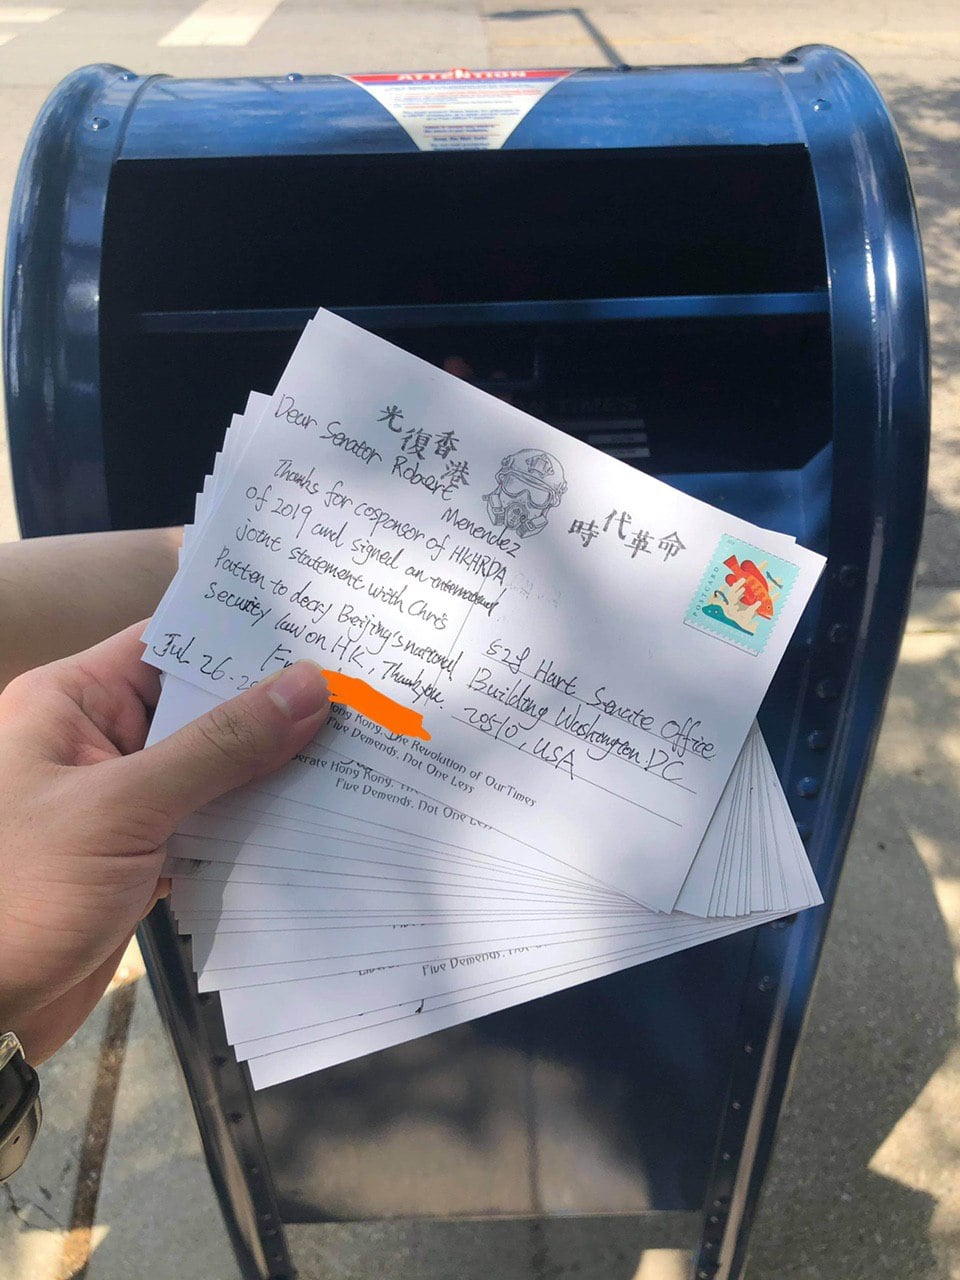 ATTENTION
光復香港
時代革命
POSTCARD
Dear Senator Robert
Menendez
Thanks for cosponsor of HKHRDA
of 2019 and signed an international
joint statement with Chris
Patten to decry Beijing's national
Security law on HK, Thank you.
Jul 26-20
528 Hart Senate Office
Building Washington DC
20510, USA
Hong Kong, The Revolution of Our Times
Five Demends, Not One Less
Hong Kong,
Five Demends, Not One Less
Five Demends, Not